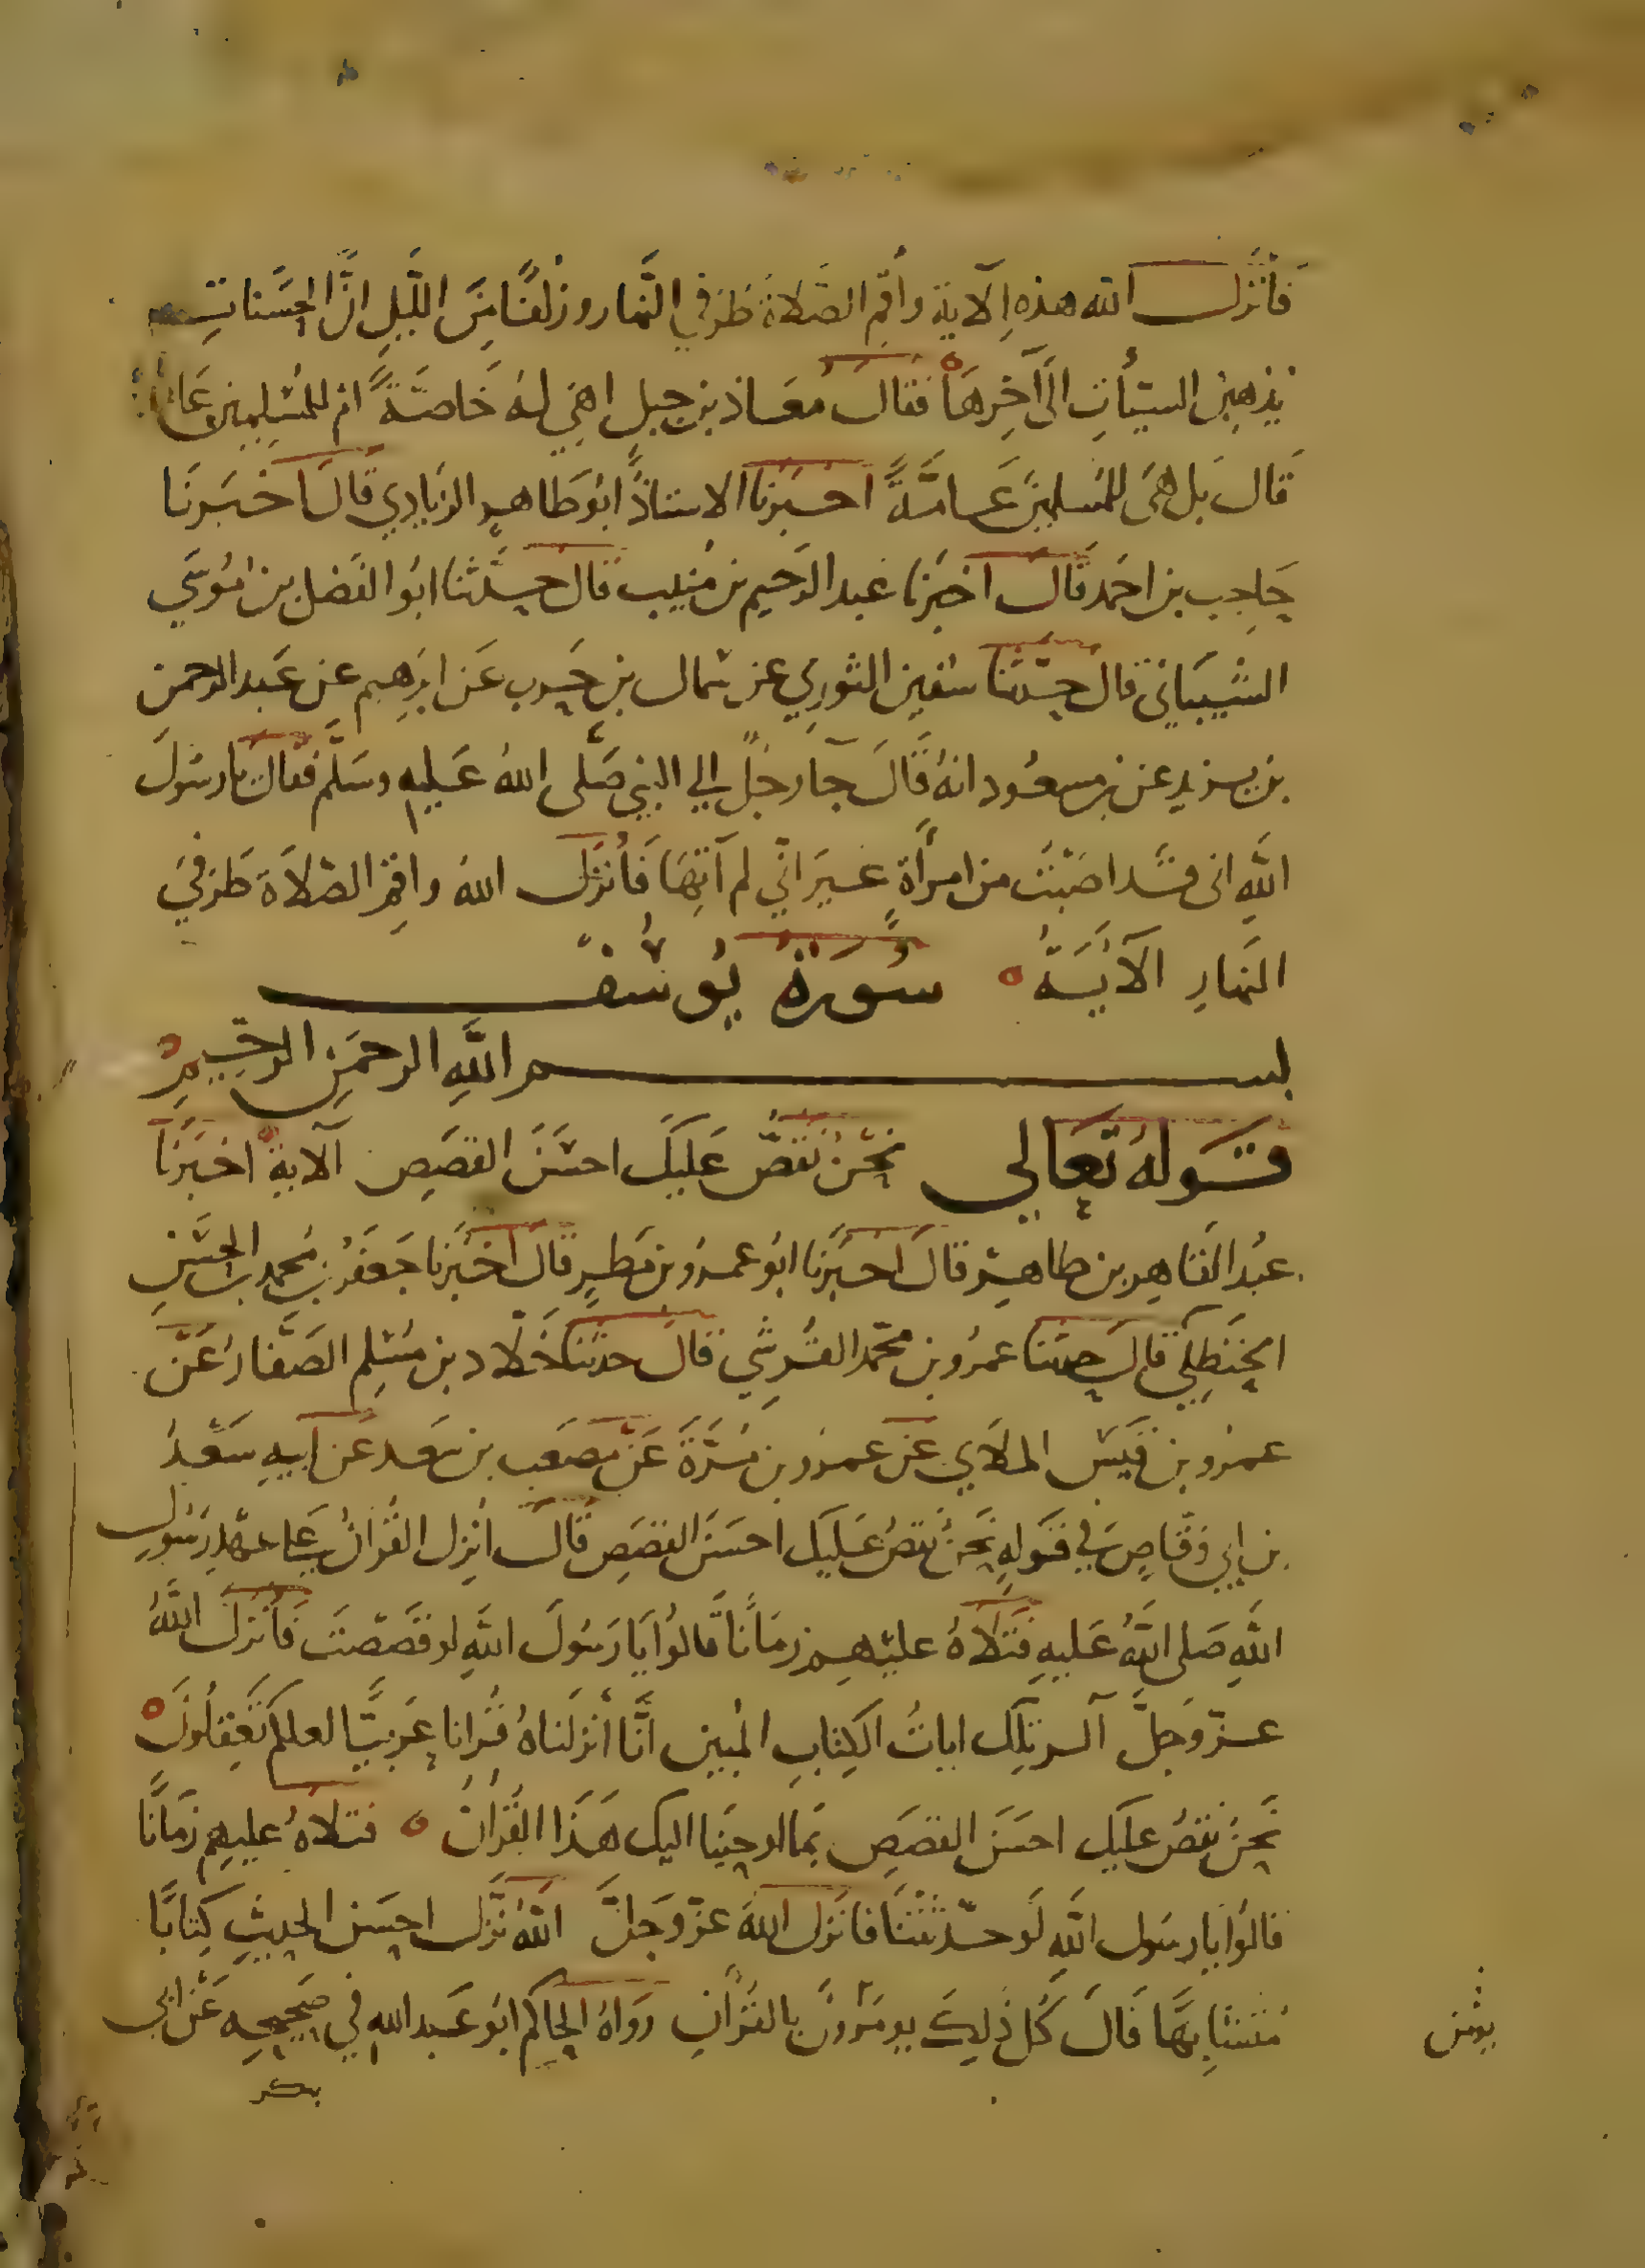 فَأنزل الله هذه الآية وأقم الصَّلاةَ طَرفي النَّهار وزلفًا مِنَ اللَّيلِ انَّ الحَسَنات
يُذهبن السيّأتِ الَى آخِرِهَا فقال مُعَاذ بن جبلٍ اهِيَ لهُ خَاصَّةً ام للمُسْلِمين عَامَّةً
قَالَ بَل هىَ للمُسلمينَ عَامَّةً اخبَرنا الاستاذُ ابُو طَاهرٍ الزيَادِي قَالَ اخبَرنَا
حَاجب بن احمَد قَالَ اخبَرنَا عبد الرَحيم بن مُنيب قال حدَّثنا ابُو الفَضل بن مُوسَي
الشيبَانى قال حدّثنا سُفين الثوري عن سماك بن حَرب عَن ابرَهيم عن عَبد الرحمن
بن يزيد عن بن مسعُود انهُ قَالَ جآ رجُلٌ الي النبي صَلَّى اللهُ عَليهِ وسَلَّم فقال يا رسُولَ
اللَّهِ انى قَد اصَبْتُ من امرأةٍ غيرَ انّي لم آتِهَا فَأنزل اللهُ واقِمِ الصّلاَةَ طَرفيَ
النهَارِ الآيَةُ سُورة يُوسُف
بسم اللَّهِ الرحمَنِ الرحِيمِ
قولهُ تعَالي نَحْنُ نَقُصُّ عَليكَ احسَنَ القصَصِ الآية اخبَرنَا
عبدُ القَاهِر بن طاهرٍ قالَ اخبَرنا ابُو عمرُو بن مَطرٍ قال اخبَرنا جَعفَرُ بن محمد بن الحسَين
الحَنظِلي قال حدثنا عمرُو بن محمّد القُرشي قالَ حدثنا خَلّاد بن مُسْلِم الصَفّارُ عَن
عمرُو بن قَيسِ الملاَي عَن عمرُو بن مُرَّةَ عَن مُصعَب بن سَعد عَن ابيهِ سَعدِ
بن ابي وَقّاصٍ في قَولهِ نَحنُ نَقصُ عَليكَ احسَنَ القصَصِ قالَ انُزل القُرانُ عَلى عهدِ رَسُولِ
اللَّهِ صَلى اللَّهُ عَليهِ فَتَلاهُ عليهم زمَانًا قَالوُا يَا رَسُولَ اللَّهِ لو قَصَصْتَ فَأنزلَ اللَّهُ
عزّ وَجلَّ آلر تِلكَ اياتُ الكِتابِ المُبين انَّا أنزلنَاهُ قُرانا عَربيًّا لعلكم تَعقِلُونَ
نَحنُ نقصُ عليكَ احسَنَ القصَصِ بمَا اوحينَا اليكَ هَذَا القُرانُ فتلاهُ عليهم زمَانًا
قالوُا يَا رسُول اللَّهِ لَو حدّثتَنَا فانَزل اللهُ عزّ وجَلَّ اللَّهُ نَزَّل احسَن الحديثِ كِتابًا
مُتشابِهًا قَالَ كُل ذَلِكَ يومَرُونَ بالقُرآنِ رَوَاهُ الحاكم ابُو عَبد اللهِ في صَحيحِهِ عَن ابي
بكر